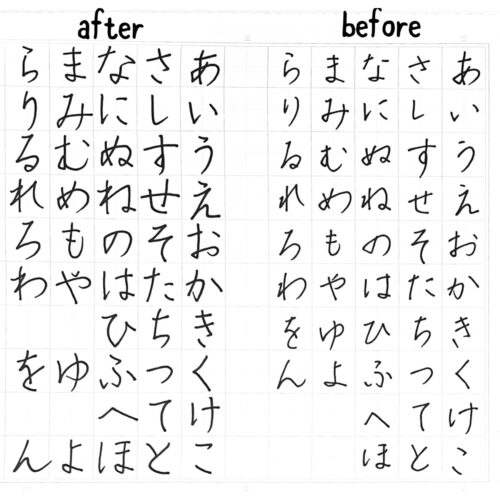 after
あいうえおかきくけこ
さしすせそたちつてと
なにぬねのはひふへほ
まみむめもやゆよ
らりるれろわをん
before
あいうえおかきくけこ
さしすせそたちつてと
なにぬねのはひふへほ
まみむめもやゆよ
らりるれろわをん